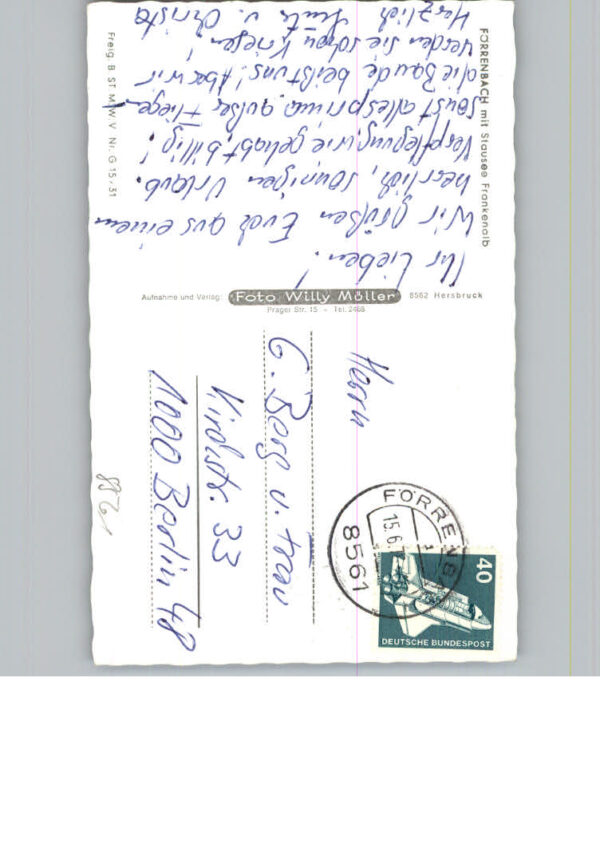 FÖRRENBACH mit Stausee Frankenalb
Ihr Lieben!
Wir grüßen Euch aus einem
herrlich, sonnigen Urlaub.
Verpflegung wie gehabt, billig!
Sonst alles prima außer Fliegen
die Bande beißt uns! Aber wir
werden sie schon kriegen!
Herzlich v. Christa
Freig. B ST M W V Nr. G 15/ 31
Aufnahme und Verlag: Foto Willy Möller 8562 Hersbruck
Prager Str. 15 - Tel. 2468
Herrn
G. Berg u. Frau
Kirchstr. 33
1000 Berlin 48
8561
FÖRRENB
15.6.
40
DEUTSCHE BUNDESPOST